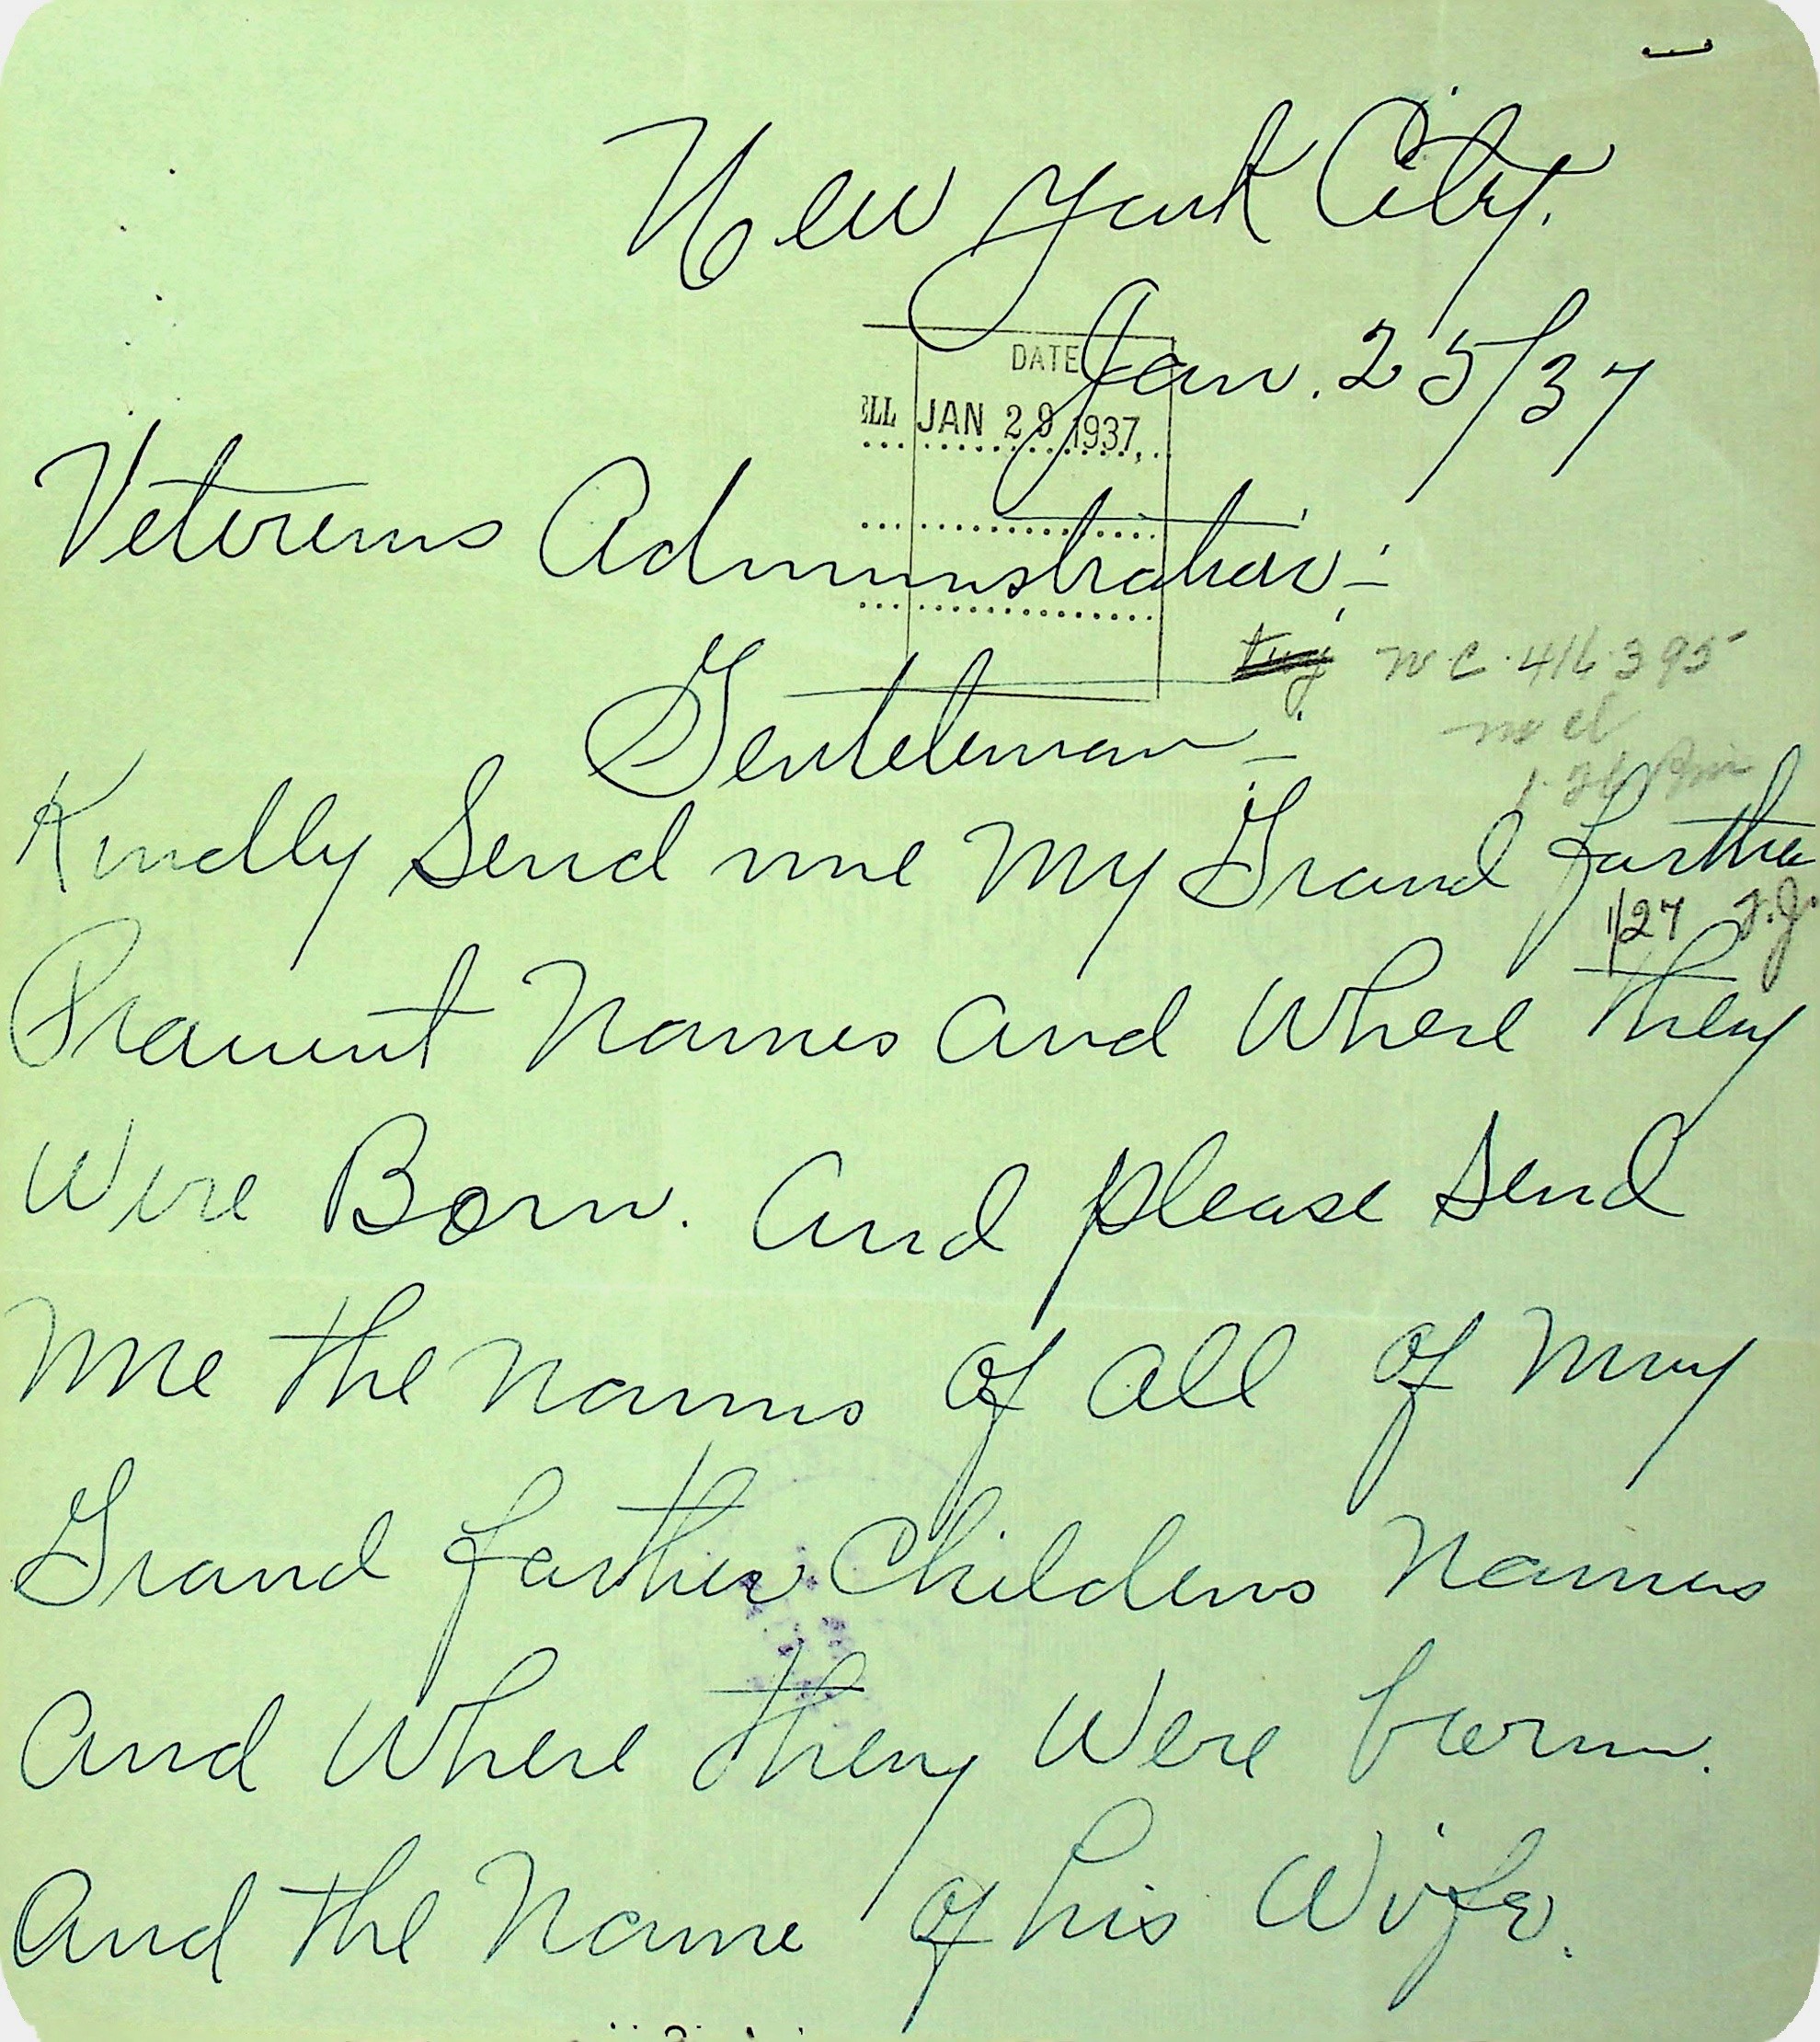 New York City.
Jan. 25/37
DATE
ELL JAN 29 1937
Veterens Administration:-
W C. 416 395
Genteleman:-
Kindly Send me My Grand farther
1/27 J.J.
Pranent Names and Where they
Were Born. And please Send
Me the names of all of my
Grand farther Childens Names
And Where they Were born.
And the Name of his Wife.